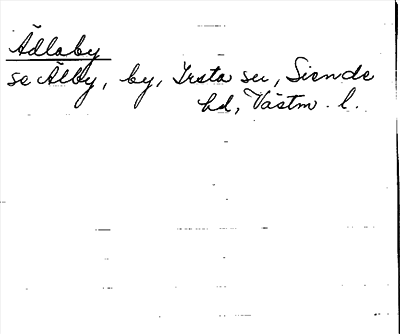 Ädlaby
se Älby, by, Irsta sn, Siende
hd, Västm. l.